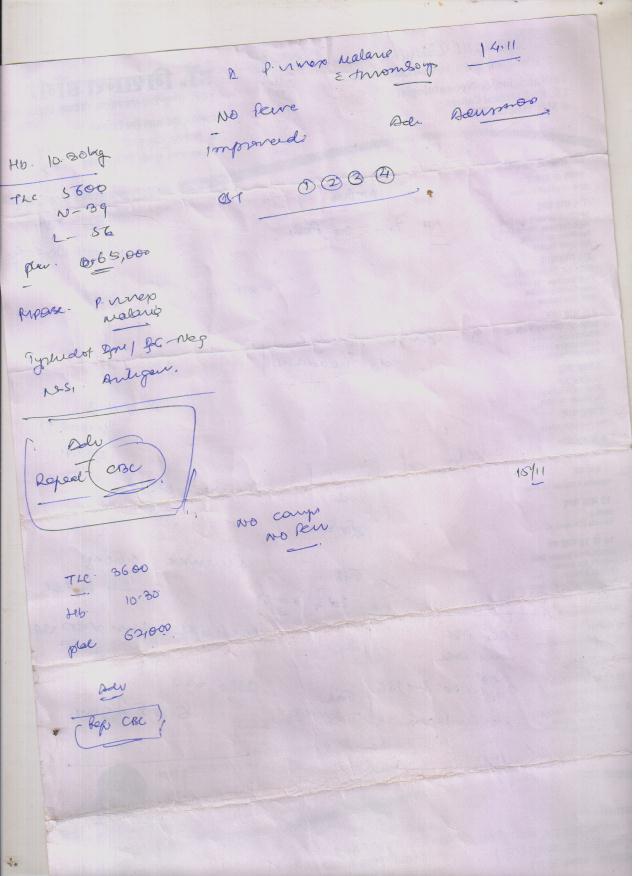 Δ P. vivax Malaria 14.11
c̄ thrombocy
NO Fever
Improved Adv Admission
Hb. 10.30
TLC 5600
CST ① ② ③ ④
N - 39
L - 56
plat. 65,000
P. vivax
Malaria
Typhidot IgM / IgG - Neg
NS1 Antigen.
Adv
Repeat CBC
15/11
NO comp
NO Fever
TLC. 3600
Hb. 10.30
plat 62,000
Adv
Rep CBC